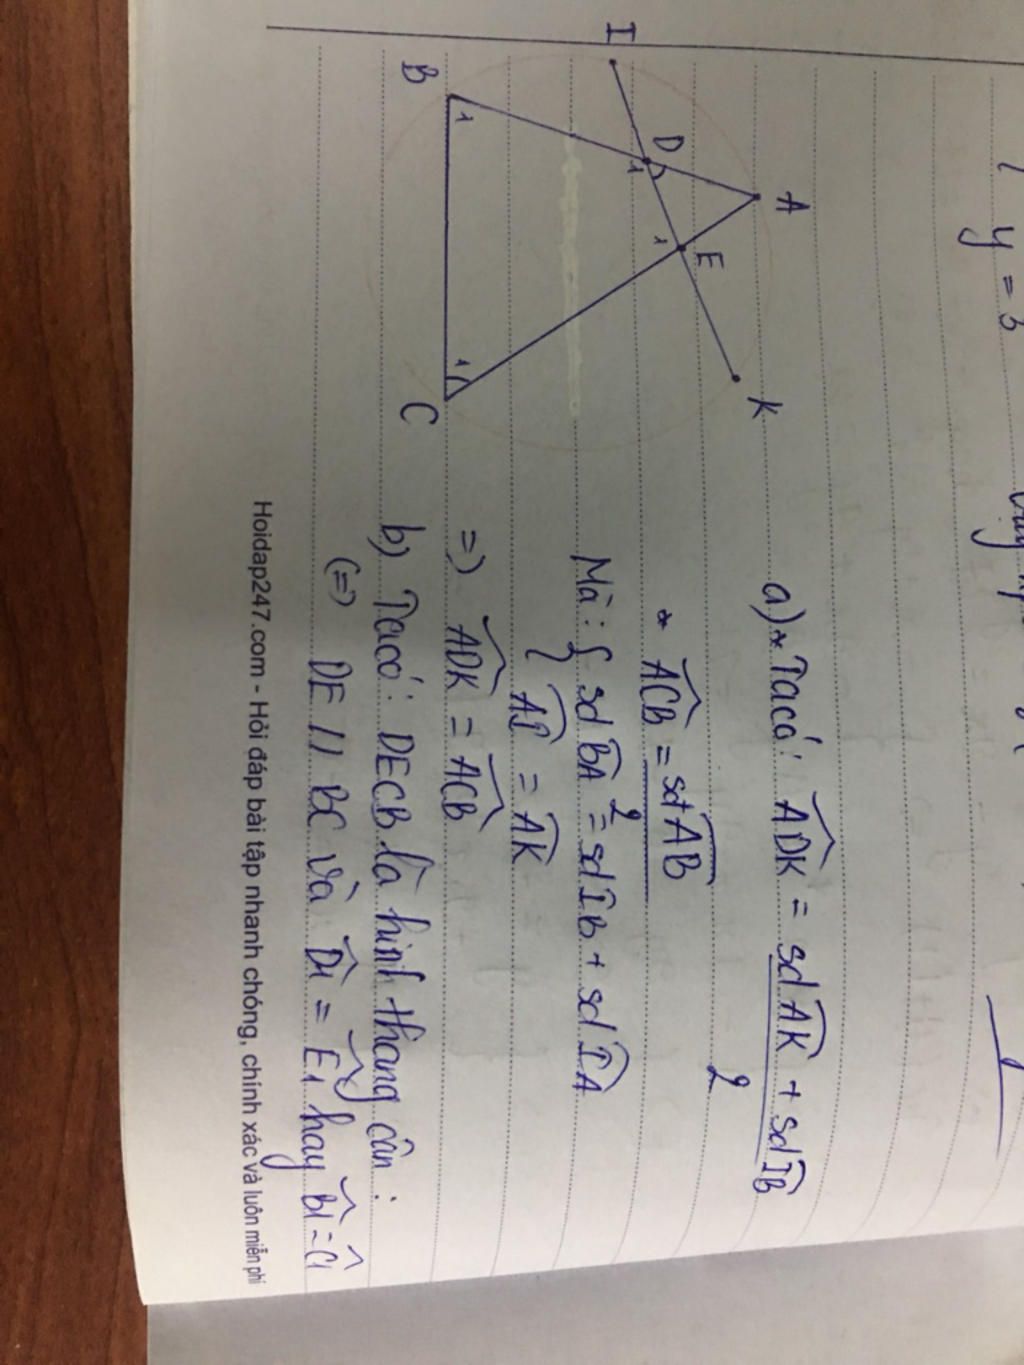 y = 3
I
B
1
D
1
A
1
E
K
1
C
a) * Ta có: ADK = sđ AK + sđ IB
2
* ACB = sđ AB
2
Mà: { sđ BA = sđ IB + sđ IA
AI = AK
=> ADK = ACB
b) Ta có: DECB là hình thang cân:
(=) DE // BC và D1 = E1 hay B1 = C1
Hoidap247.com - Hỏi đáp bài tập nhanh chóng, chính xác và luôn miễn phí